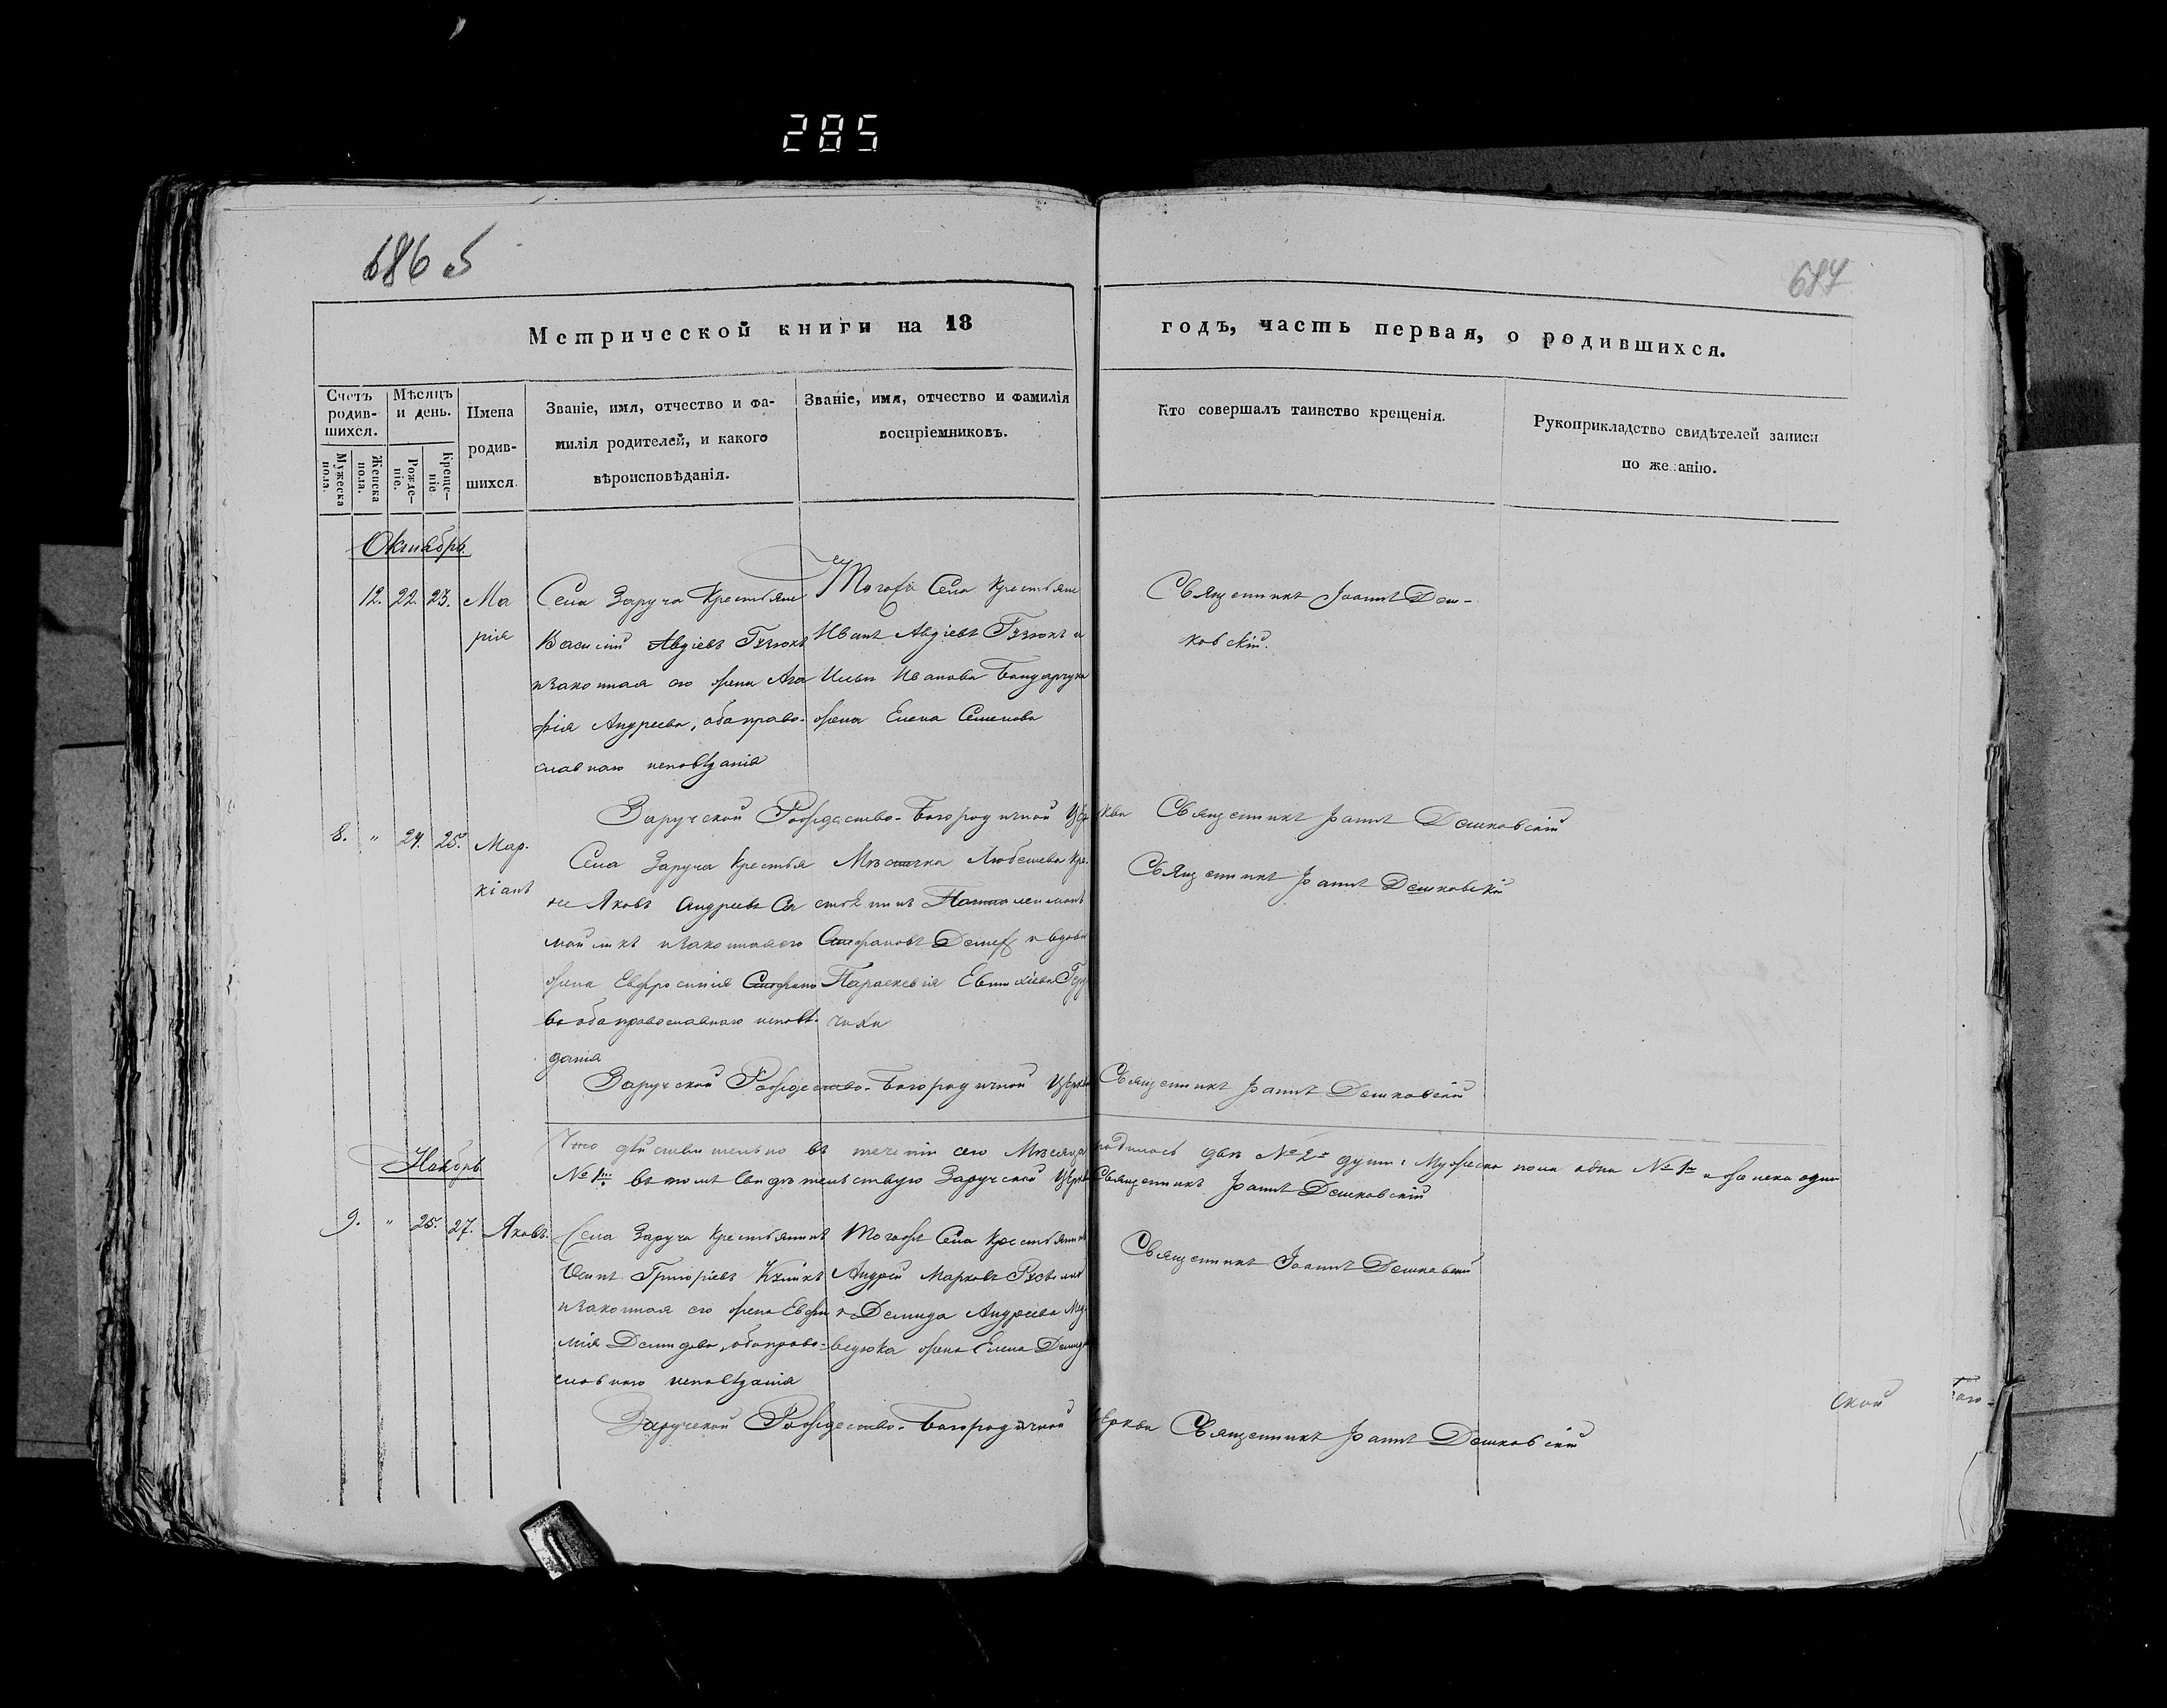 285
686 б
687
Метрической книги на 18 годъ, часть первая, о родившихся.
Счетъ родив-шихся.
Мѣсяцъ и день.
Имена родив-шихся.
Званіе, имя, отчество и фа-
милія родителей, и какого
вѣроисповѣданія.
Званіе, имя, отчество и фамилія
воспріемниковъ.
Кто совершалъ таинство крещенія.
Рукоприкладство свидѣтелей записи
по же анію.
Мужеска пола.
Женска пола.
Рожде-ніе.
Креще-ніе
Октябрь
12. 22. 23. Ма
рія
Села Заруча Крестьяне
Василій Авдіевъ Гузюкъ
и законная его жена Ага
фія Андреева, оба право-
славнаго исповѣданія
Тогожъ Села Крестьяне
Иванъ Авдіевъ Гузюкъ и
Ильи Иванова Бондарчука
жена Елена Семенова
Священникъ Іоаннъ Деш-
ковскій.
Заручской Рождество-Богородичной Церкви Священникъ Іоаннъ Дешковскій
8. " 24. 25. Мар-
кіанъ
Села Заруча Крестья
не Яковъ Андреевъ Са
мойликъ и законная его
жена Евфросинія Стефано
ва оба православнаго исповѣ-
данія
Мѣстечка Любешева Кре-
стьянинъ
Стефановъ и вдова
Параскевія Евтихіева
чиха
Священникъ Іоаннъ Дешковскій
Заручской Рождество-Богородичной Церкви Священникъ Іоаннъ Дешковскій
Что дѣйствительно въ теченіи сего Мѣсяца родилось двѣ № 2 души: Мужеска пола одна № 1 и женска одна
№ 1 въ томъ свидѣтельствую Заручской Церкви Священникъ Іоаннъ Дешковскій
Ноябрь
9. " 25. 27. Яковъ.
Села Заруча Крестьянинъ
Осипъ Григоріевъ
и законная его жена Евфи
мія Демидова, оба право-
славнаго исповѣданія
Тогожъ Села Крестьянинъ
Андрей Марковъ
и Демида Андреева Мед-
ведюка жена Елена
Священникъ Іоаннъ Дешковскій
Заручской Рождество-Богородичной Церкви Священникъ Іоаннъ Дешковскій
ской